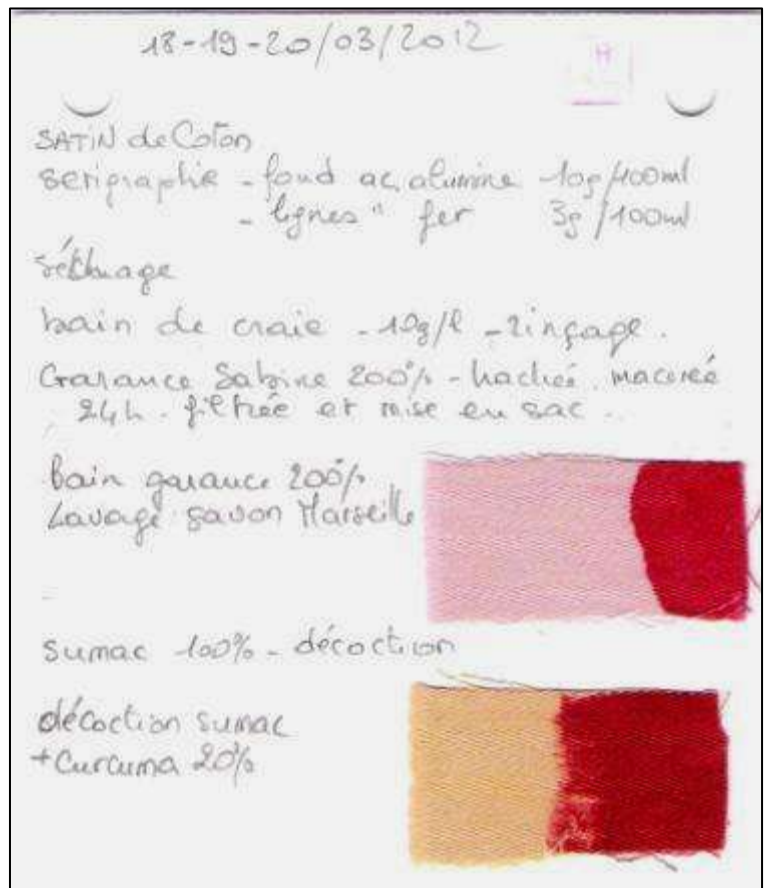 18-19-20/03/2012
H
SATIN de Coton
serigraphie - fond ac. alumine 10g/100ml
- lignes " fer 3g/100ml
séchage
bain de craie - 10g/l - rinçage.
Garance Sabine 200% - hachée. macérée
24h. filtrée et mise en sac..
Bain garance 200%
Lavage savon Marseille
sumac 100% - décoction
décoction sumac
+ Curcuma 20%